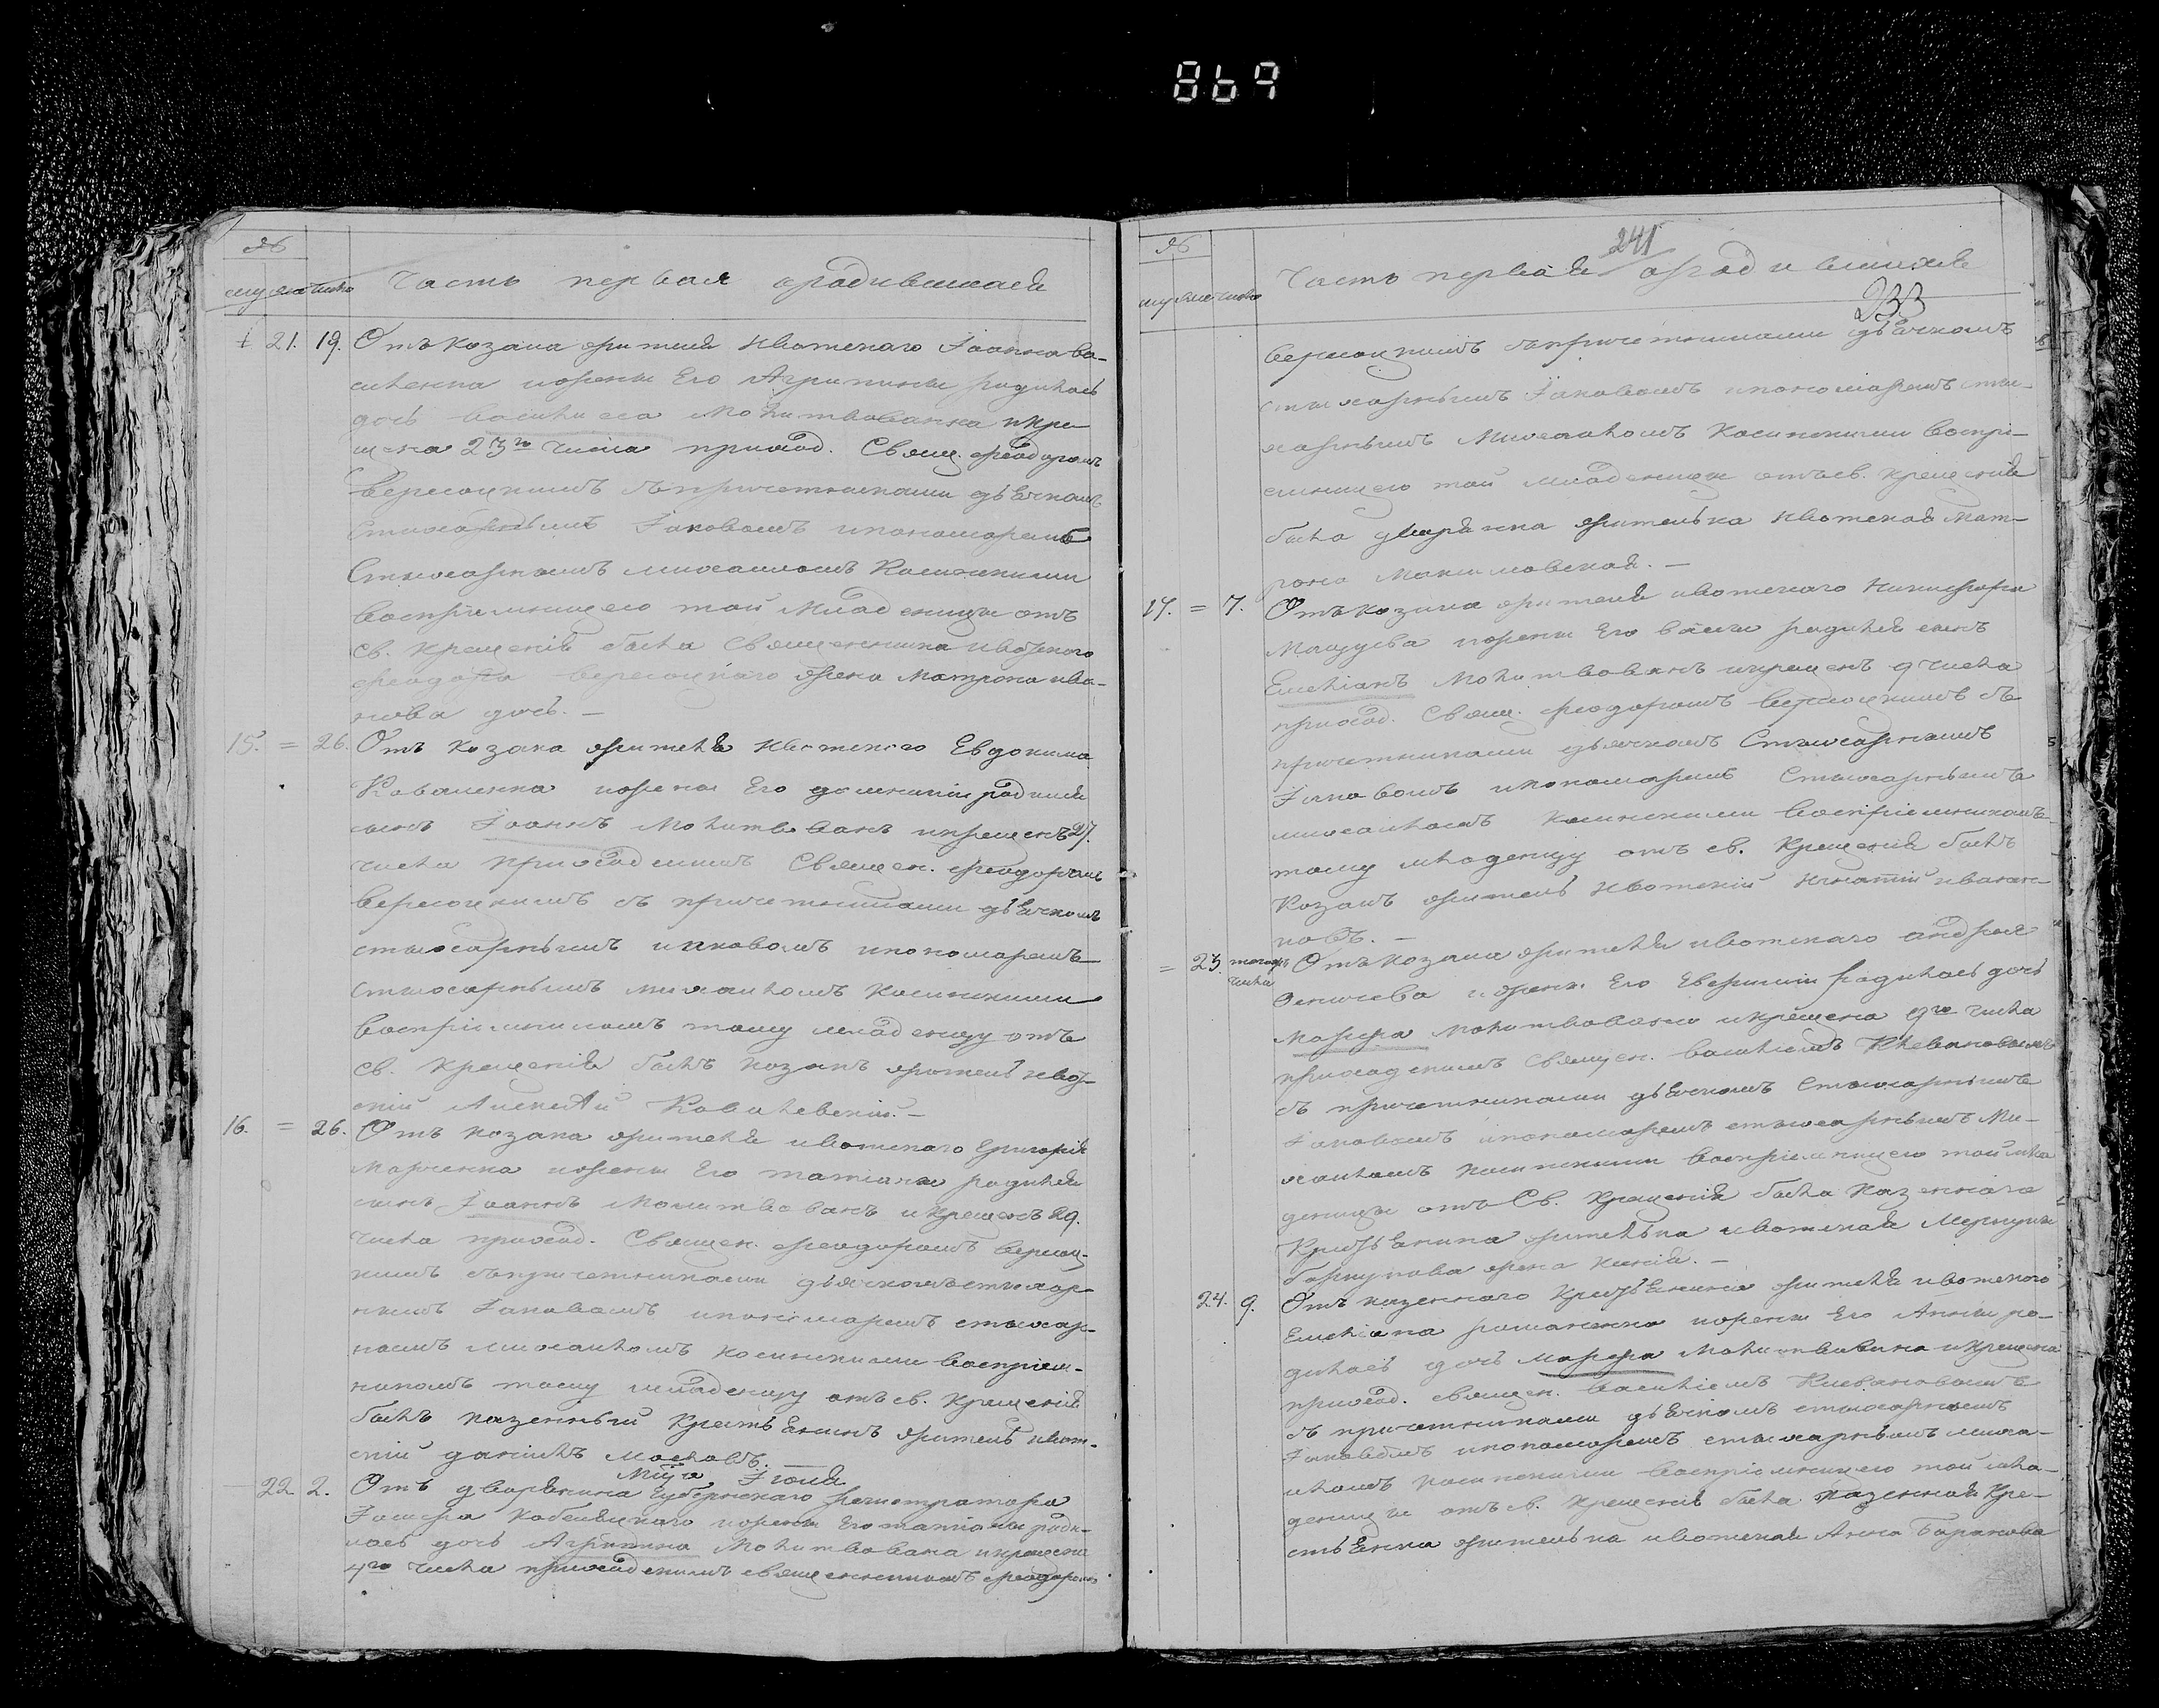 869
№
муж жен число Часть первая о родившихся
21. 19. Отъ козака жителя Ивотского Іоанна Ва-
силенка и жены Его Агрипины родилась
дочь Василиса Молитвованна и кре-
щена 23го числа приход. Свящ. Феодоромъ
Вересоцкимъ съ причетниками дьячкомъ
Стихарнымъ Іаковомъ и пономаремъ
Стихарнымъ Михаиломъ Косинскими
Воспріемницею той Младеницы отъ
св. крещенія была Священника Ивотского
Феодора Вересоцкаго жена Матрона Ива-
нова дочь. —
15. = 26. Отъ козака жителя Ивотского Евдокима
Коваленка и жены Его Домникіи родился
сынъ Іоаннъ Молитвованъ и крещенъ 27.
числа приходскимъ Священ. Феодоромъ
Вересоцкимъ съ причетниками дьячкомъ
стихарнымъ Иаковомъ и пономаремъ
Стихарнымъ Михаиломъ Косинскими
Воспріемникомъ тому младенцу отъ
св. крещенія былъ козакъ житель Ивот-
скій Алексѣй Ковалевскій. —
16. = 26. Отъ козака жителя Ивотского Григорія
Марченка и жены Его Татіаны родился
сынъ Іоаннъ Молитвованъ и Крещенъ 29.
числа приход. Священ. Феодоромъ Вересоц-
кимъ съ причетниками дьячкомъ стихар-
нымъ Іаковомъ и пономаремъ стихар-
нымъ Михаиломъ Косинскими Воспріем-
никомъ тому младенцу отъ св. Крещенія
былъ казенный Крестьянинъ житель Ивот-
скій Даніилъ
Мца Іюня
22. 2. Отъ дворянина Губернскаго регистратора
Кобеляцкаго и жены Его Татіаны роди-
лась дочь Агрипина Молитвована и крещена
4го числа приходскимъ священникомъ Феодоромъ
241
№
муж жен число Часть первая о родившихся
233
Вересоцкимъ съ причетниками дьячкомъ
стихарнымъ Іаковомъ и пономаремъ сти-
харнымъ Михаиломъ Косинскими Воспрі-
емницею той младеницы отъ св. крещенія
была дворянка жителька Ивотская Мат-
рона Максимовская. —
17. = 7. Отъ козака жителя Ивотского Никифора
и жены Его родился сынъ
Емеліанъ Молитвованъ и крещенъ 9 числа
приход. Свящ. Феодоромъ Вересоцкимъ съ
причетниками дьячкомъ Стихарнымъ
Іаковомъ и пономаремъ Стихарнымъ
Михаиломъ Косинскими Воспріемникомъ
тому младенцу отъ св. Крещенія былъ
Козакъ житель Ивотскій Игнатій Иванен-
ковъ. —
= 23. тогожъ числа Отъ козака жителя Ивотского Андрея
и жены Его родилась дочь
Марфа молитвована и крещена 9го числа
приходскимъ Священ. Василіемъ
съ причетниками дьячкомъ Стихарнымъ
Іаковомъ и пономаремъ стихарнымъ Ми-
хаиломъ Косинскими Воспріемницею той мла
деницы отъ Св. Крещенія была Казеннаго
Крестьянина жителька Ивотская Меркурія
жена —
24. 9. Отъ казенного Крестьянина жителя Ивотского
Емеліана Романенка и жены Его Анны ро-
дилась дочь Марфа Молитвована и Крещена
приход. священ. Василіемъ
съ причетниками дьячкомъ стихарнымъ
Іаковомъ и пономаремъ стихарнымъ Миха-
иломъ Косинскими Воспріемницею той мла-
деницы отъ св. Крещенія была казенная Кре-
стьянка жителька Ивотская Анна Баранова